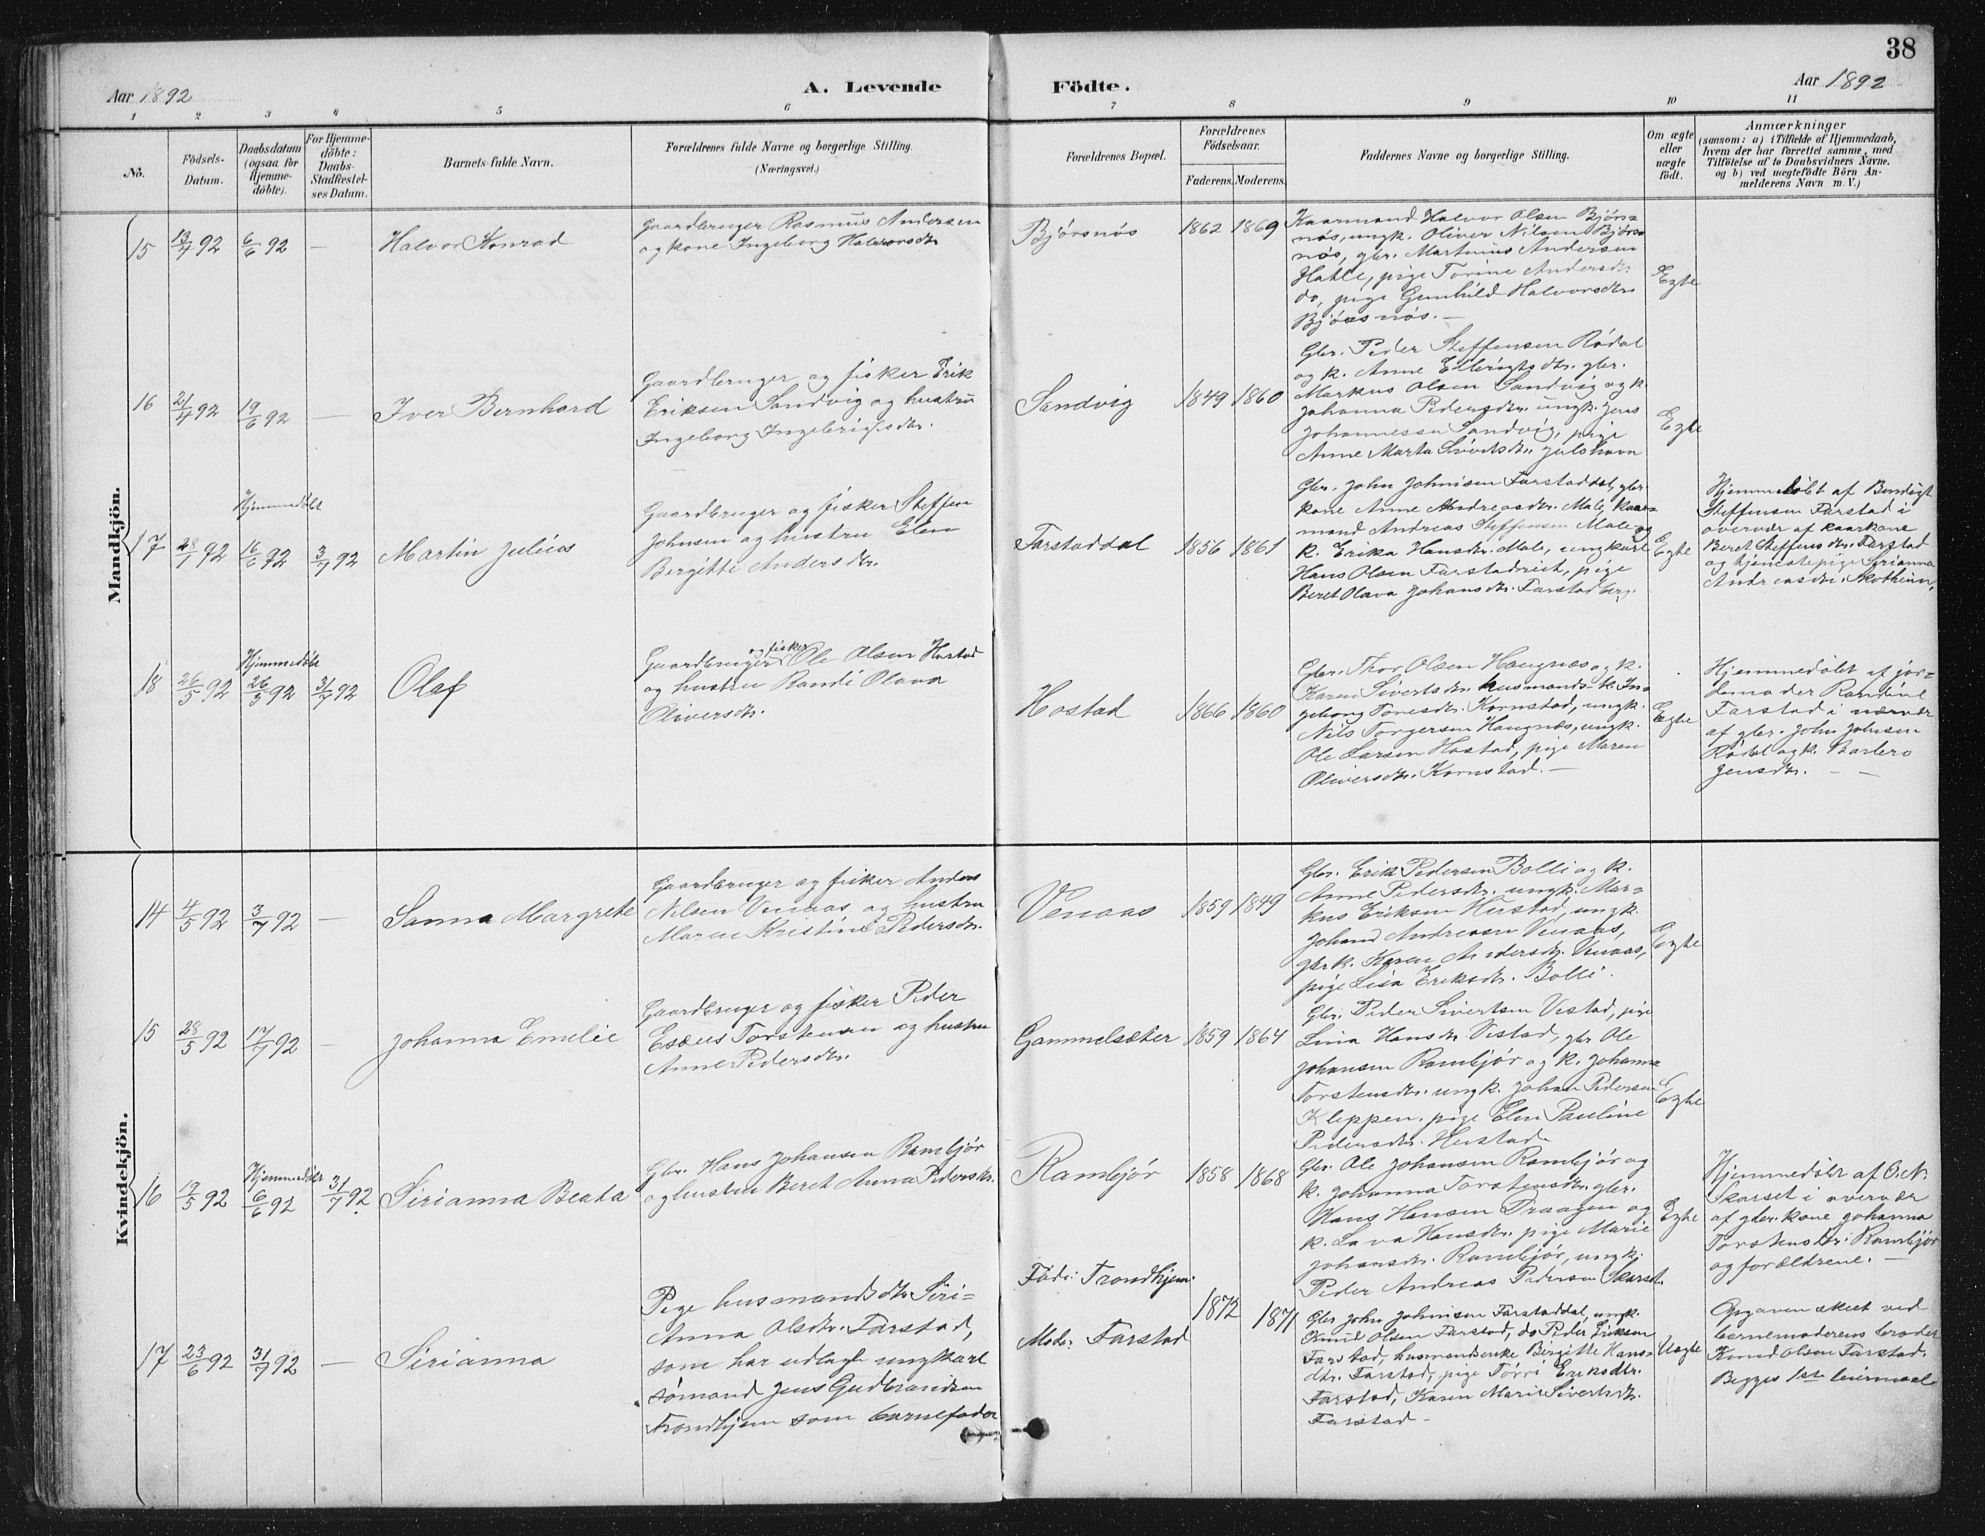 38
Aar 1892
A. Levende
Födte.
Aar 1892
1 2 3 4 5 6 7 8 9 10 11
No.
Födsels-
Datum.
Daabsdatum
(ogsaa for
Hjemme-
döbte).
For Hjemme-
döbte:
Daabs-
Stadfestel-
ses Datum.
Barnets fulde Navn.
Forældrenes fulde Navne og borgerlige Stilling.
(Næringsvei.)
Forældrenes Bopæl.
Forældrenes
Födselsaar.
Faderens. Moderens.
Faddernes Navne og borgerlige Stilling.
Om ægte
eller
uægte
födt.
Anmærkninger
(saasom: a) i Tilfælde af Hjemmedaab,
hvem der har forrettet samme, med
Tilföielse af to Daabsvidners Navne.
og b) ved uægtefödte Börn An-
melderens Navn m. V.)
Mandkjön.
15 13/4 92 6/6 92 — Halvor Konrad
Gaardbruger Rasmus Andersen
og kone Ingeborg Halvorsdtr.
Bjørsnøs 1862 1869
Kaarmand Halvor Olsen Bjørs-
nøs, ungk. Oliver Nilsen Bjørs-
nøs, gbr. Martinus Andersen
Hatle, pige Torine Andersdtr.
do, pige Gunhild Halvorsdtr.
Bjørsnøs. —
Egte
16 21/4 92 19/6 92 — Iver Bernhard
Gaardbruger og fisker Erik
Eriksen Sandvig og hustru
Ingeborg Ingebrigtsdtr.
Sandvig 1849 1860
Gbr. Peder Steffensen Rødal
og k. Anne Ellingsdtr. gbr.
Markus Olsen Sandvig og k.
Johanna Pedersdtr. ungk. Jens
Johannessen Sandvig, pige
Anne Marta Sivertsdtr. Julshavn
Egte
17 28/1 92 Hjemmedøbt 16/6 92 3/7 92 Martin Julius
Gaardbruger og fisker Steffen
Johnsen og hustru Elen
Bergitte Andersdtr.
Farstaddal 1856 1861
Gbr. John Johnsen Farstaddal, gbr.
kone Anne Andreasdtr. Male, kaar-
mand Andreas Steffensen Male og
k. Erika Hansdtr. Male, ungkarl
Hans Olsen Farstadreit, pige
Beret Olava Johansdtr. Farstadberg.
Egte
Hjemmedøbt af Bendigt
Steffensen Farstad i
overvær af kaarkone
Beret Steffensdtr. Farstad
og tjenestepige Sirianna
Andreasdtr. Skotheim.
18 26/5 92 Hjemmedøbt 26/5 92 31/7 92 Olaf
Gaardbruger og fisker Ole Olsen Hostad
og hustru Randi Olava
Oliversdtr.
Hostad 1866 1860
Gbr. Thor Olsen Haugnæs og k.
Karen Sivertsdtr. husmands k. In-
geborg Tonesdtr. Kornstad, ungk.
Nils Torgersen Haugnæs, ungk.
Ole Larsen Hostad, pige Maren
Oliversdtr. Kornstad. —
Egte
Hjemmedøbt af jor-
demoder Randine
Farstad i nærvær
af gbr. John Johnsen
Rødal og k. Barbero
Jensdtr. — —
Kvindekjön.
14 4/5 92 3/7 92 — Sanna Margrete
Gaardbruger og fisker Anders
Nilsen Venaas og hustru
Maren Kristine Pedersdtr.
Venaas 1859 1849
Gbr. Erik Pedersen Bolli og k.
Anne Pedersdtr. ungk. Mar-
kus Eriksen Herstad, ungk.
Johand Andreasen Venaas,
gbr.k. Karen Andersdtr. Venaas,
pige Lisa Eriksdtr. Bolli.
Egte
15 28/5 92 17/7 92 — Johanna Emelie
Gaardbruger og fisker Peder
Esæus Torstensen og hustru
Anne Pedersdtr.
Gammelsæter 1859 1864
Gbr. Peder Sivertsen Vestad, pige
Lina Hansdtr. Vestad, gbr. Ole
Johansen Rambjør og k. Johanna
Torstensdtr. ungk. Johan Pedersen
Kleppen. pige Elen Pauline
Pedersdtr. Herstad.
Egte
16 17/5 92 Hjemmedøbt 6/6 92 31/7 92 Sirianna Beata
Gbr. Hans Johansen Rambjør
og hustru Beret Anna Pedersdtr.
Rambjør 1858 1868
Gbr. Ole Johansen Rambjør og
k. Johanna Torstensdtr. gbr.
Hans Hansen Praagen og
k. Lava Hansdtr. pige Marie
Johansdtr. Rambjør, ungk.
Peder Andreas Pedersen Skarset.
Egte
Hjemmedøbt af O. N.
Skarset i overvær
af gbr. kone Johanna
Torstensdtr. Rambjør
og forældrene. —
17 23/6 92 31/7 92 — Sirianna
Pige husmandsdtr. Siri-
Anna Olsdtr. Farstad,
som har udlagt ungkarl
sømand Jens Gudbrandsen
Trondhjem som barnefader
Fader: Trondhjem.
Moder: Farstad
1872 1871
Gbr. John Johnsen Farstaddal, ungk.
Knud Olsen Farstad, do Peder Eriksen
Farstad, husmandsenke Bergitte Hans-
dtr. Farstad, pige Torri Eriksdtr.
Farstad, Karen Marie Sivertsdtr.
Farstad —
Uegte
Opgaven skeet ved
barnemoderens broder
Knud Olsen Farstad.
Begges 1ste leiermaal